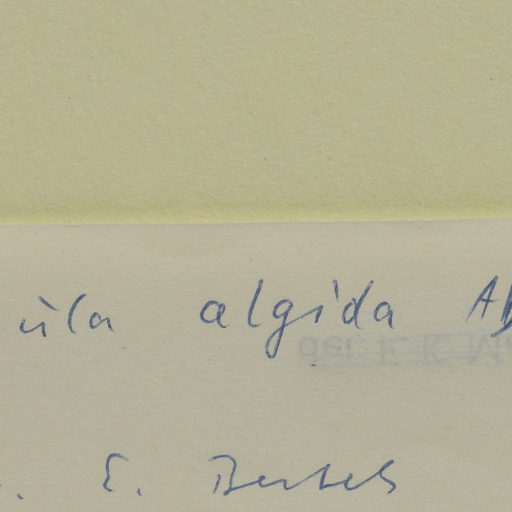 ula algida
E. Bertels